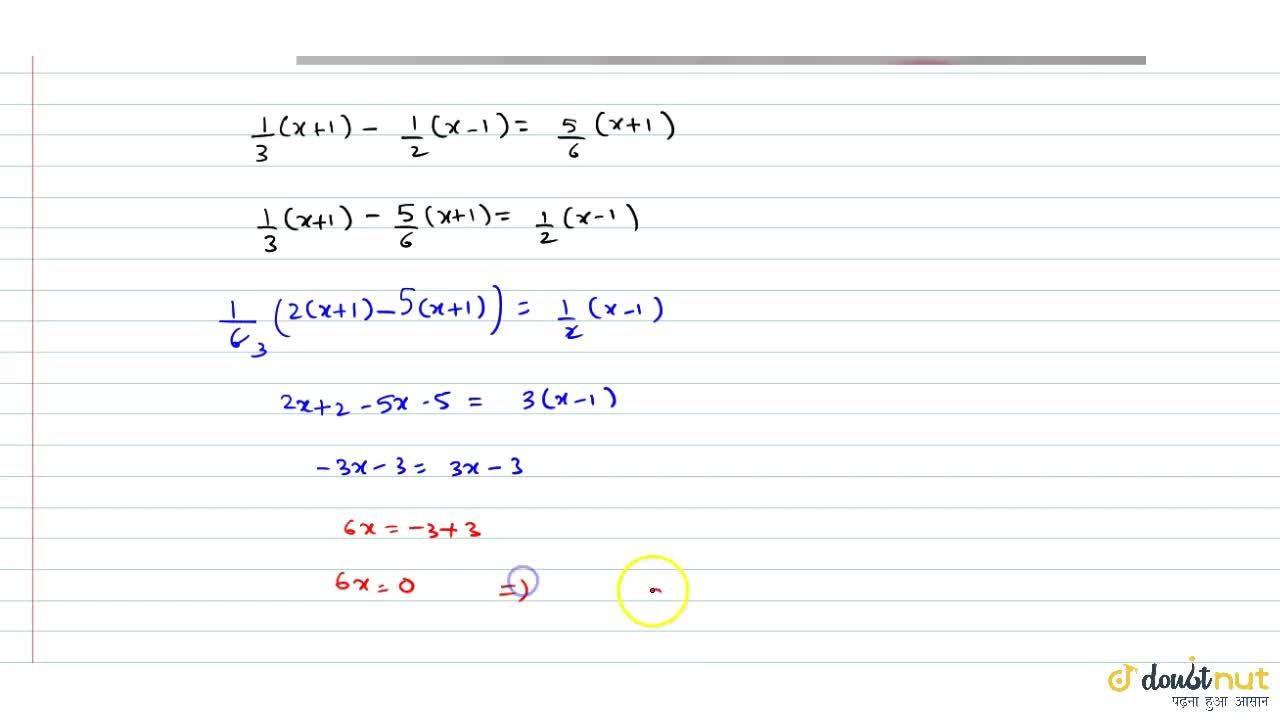 1/3 (x+1) - 1/2 (x-1) = 5/6 (x+1)
1/3 (x+1) - 5/6 (x+1) = 1/2 (x-1)
1/6 3 (2(x+1) - 5(x+1)) = 1/2 (x-1)
2x+2 - 5x - 5 = 3(x-1)
-3x - 3 = 3x - 3
6x = -3+3
6x = 0 =>
doubtnut
पढ़ना हुआ आसान